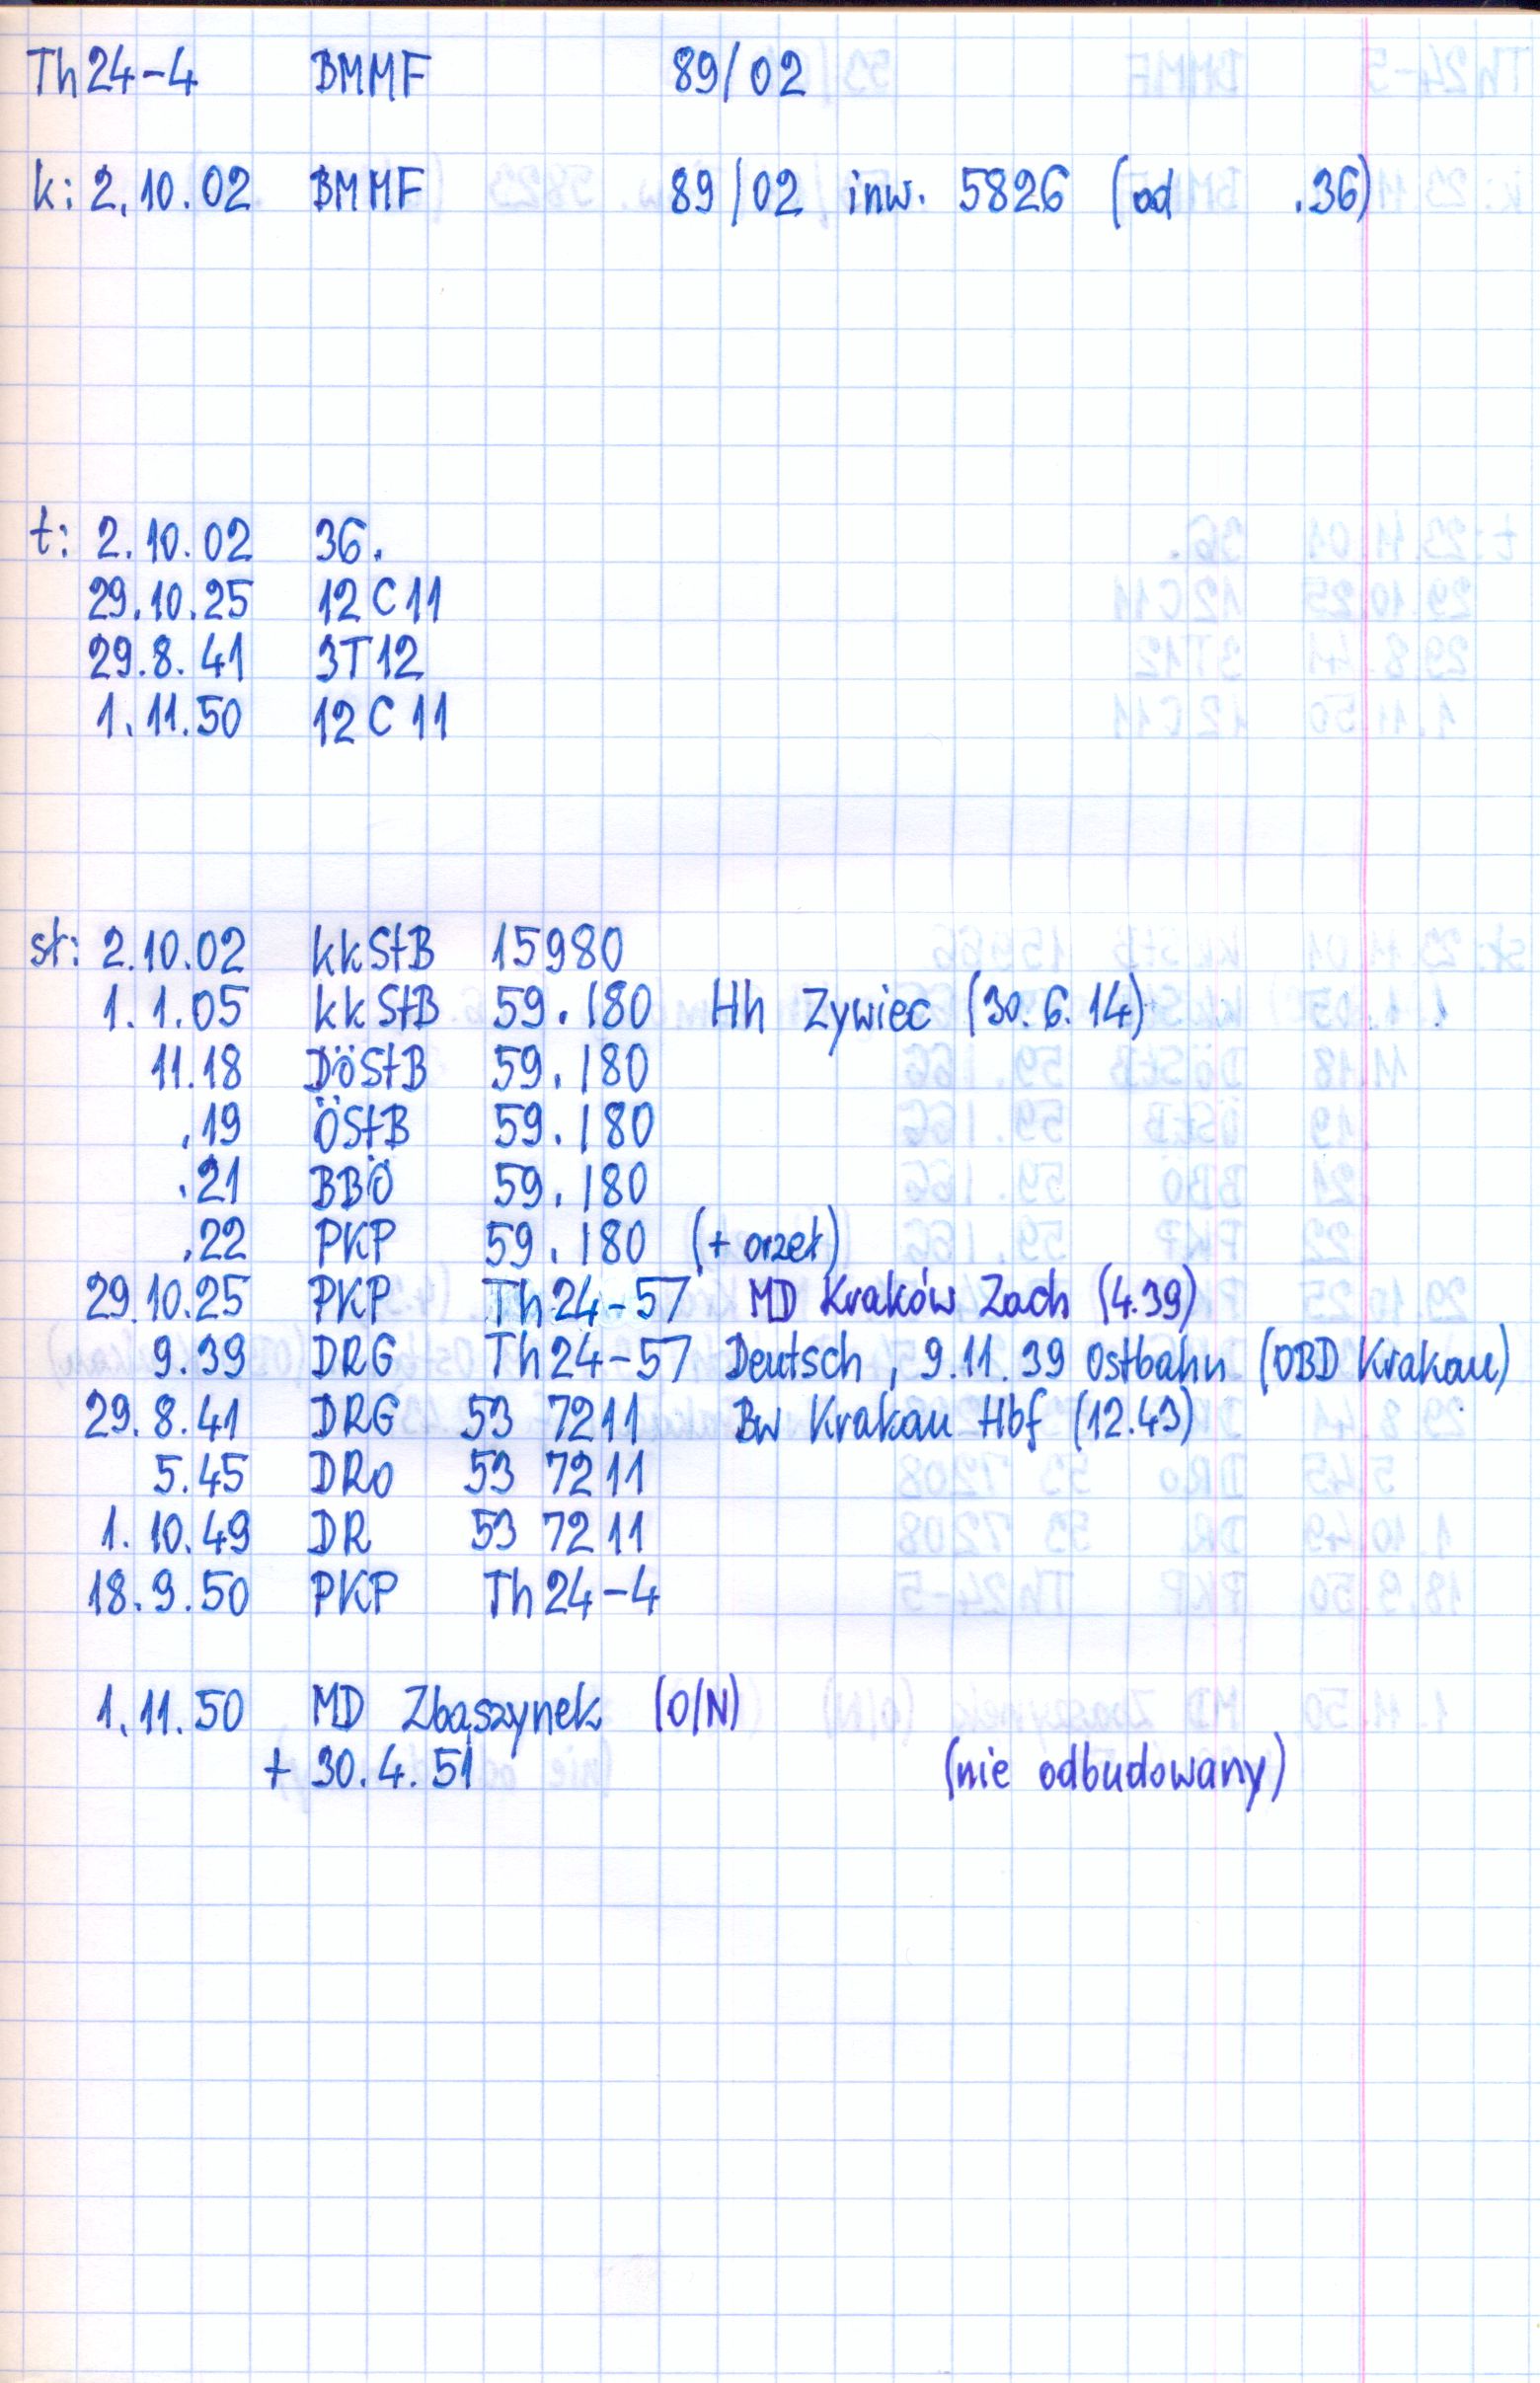 Th24-4 BMMF 89/02
k: 2.10.02 BMMF 89/02 inw. 5826 (od .36)
t: 2.10.02 36.
29.10.25 12C11
29.8.41 3T12
1.11.50 12C11
st: 2.10.02 kkStB 15980
1.1.05 kkStB 59.180 Hh Zywiec (30.6.14)
11.18 DöStB 59.180
.19 ÖStB 59.180
.21 BBÖ 59.180
.22 PKP 59.180 (+ orzeł)
29.10.25 PKP Th24-57 MD Kraków Zach (4.39)
9.39 DRG Th24-57 Deutsch, 9.11.39 Ostbahn (OBD Krakau)
29.8.41 DRG 53 7211 Bw Krakau Hbf (12.43)
5.45 DRo 53 7211
1.10.49 DR 53 7211
18.9.50 PKP Th24-4
1.11.50 MD Zbąszynek (O/N)
+ 30.4.51 (nie odbudowany)